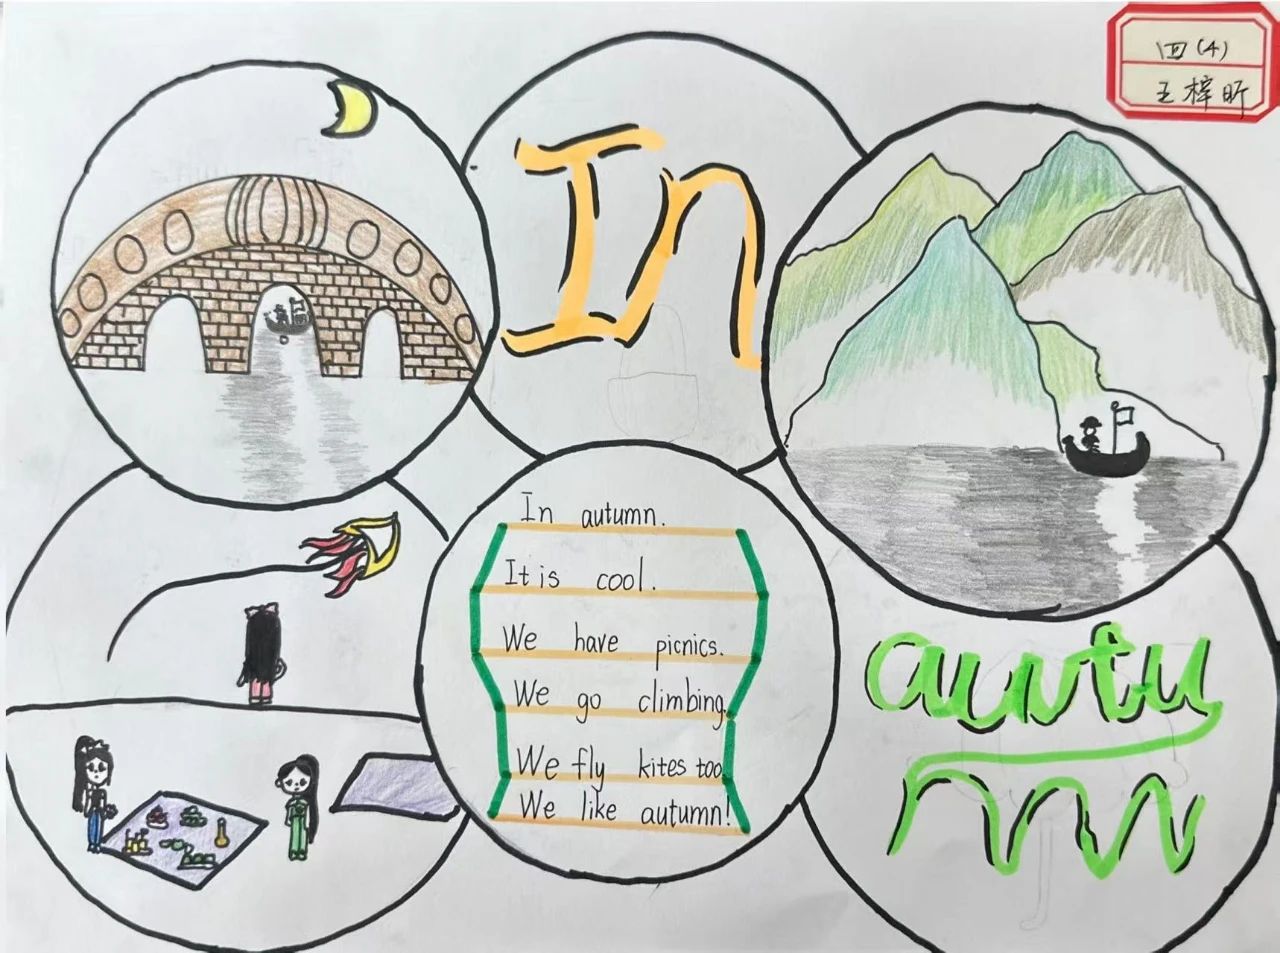 四(4)
王梓昕
In
In autumn.
It is cool.
We have picnics.
We go climbing.
We fly kites too
We like autumn!
autu
mn